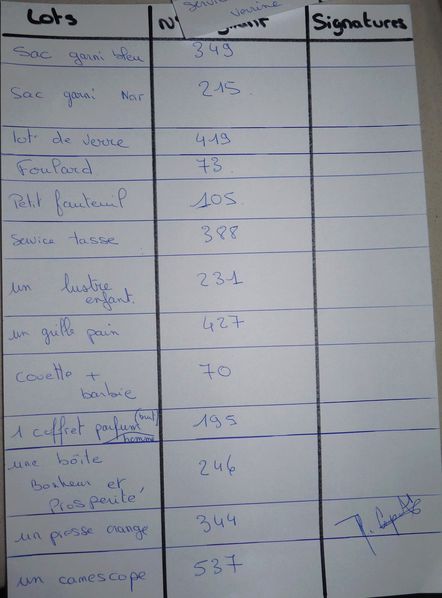 Service
verrine
Lots N° Signatures
Sac garni bleu 349
Sac garni Noir 215
lot de verre 419
Foulard 73
Petit fauteuil 105
Service tasse 388
un lustre 231
enfant.
un grille pain 427
couette + 70
barbie
1 coffret parfum (neuf) 195
homme
une boîte 246
Bonheur et
Prosperité,
un presse orange 344
un camescope 537